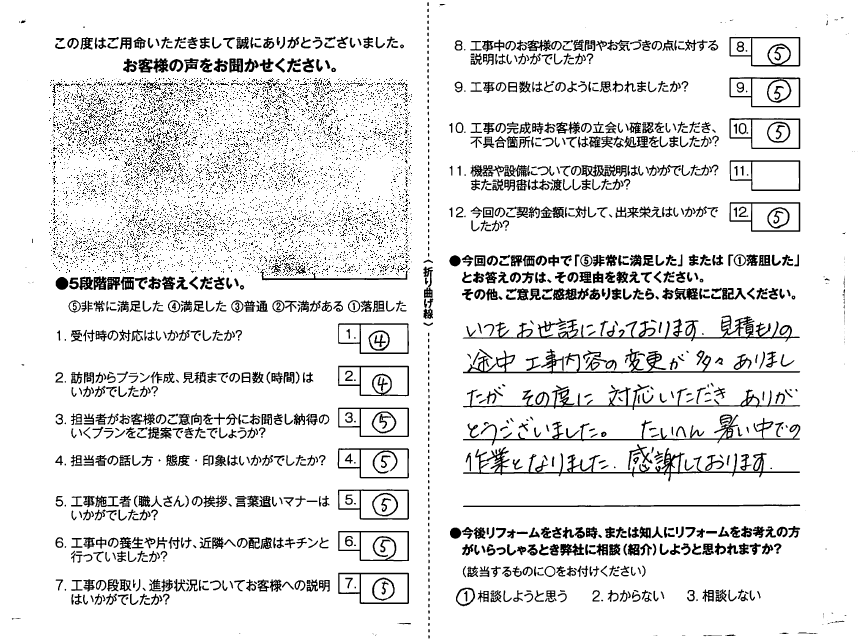 この度はご用命いただきまして誠にありがとうございました。
お客様の声をお聞かせください。
●5段階評価でお答えください。
⑤非常に満足した ④満足した ③普通 ②不満がある ①落胆した
1. 受付時の対応はいかがでしたか?
1. ④
2. 訪問からプラン作成、見積までの日数(時間)は
いかがでしたか?
2. ④
3. 担当者がお客様のご意向を十分にお聞きし納得の
いくプランをご提案できたでしょうか?
3. ⑤
4. 担当者の話し方・態度・印象はいかがでしたか?
4. ⑤
5. 工事施工者(職人さん)の挨拶、言葉遣いマナーは
いかがでしたか?
5. ⑤
6. 工事中の養生や片付け、近隣への配慮はキチンと
行っていましたか?
6. ⑤
7. 工事の段取り、進捗状況についてお客様への説明
はいかがでしたか?
7. ⑤
〈折り曲げ線〉
8. 工事中のお客様のご質問やお気づきの点に対する
説明はいかがでしたか?
8. ⑤
9. 工事の日数はどのように思われましたか?
9. ⑤
10. 工事の完成時お客様の立会い確認をいただき、
不具合箇所については確実な処理をしましたか?
10. ⑤
11. 機器や設備についての取扱説明はいかがでしたか?
また説明書はお渡ししましたか?
11.
12. 今回のご契約金額に対して、出来栄えはいかがで
したか?
12. ⑤
●今回のご評価の中で「⑤非常に満足した」または「①落胆した」
とお答えの方は、その理由を教えてください。
その他、ご意見ご感想がありましたら、お気軽にご記入ください。
いつもお世話になっております. 見積もりの
途中 工事内容の変更が 多々 ありまし
たが その度に 対応いただき ありが
とうございました。 たいへん 暑い中での
作業となりました. 感謝しております.
●今後リフォームをされる時、または知人にリフォームをお考えの方
がいらっしゃるとき弊社に相談(紹介)しようと思われますか?
(該当するものに○をお付けください)
① 相談しようと思う 2. わからない 3. 相談しない